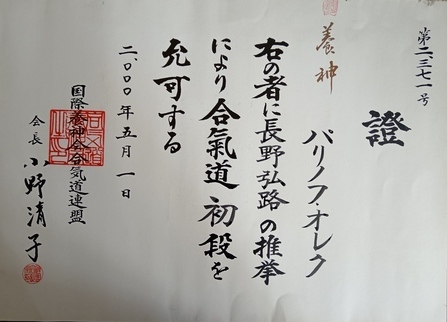 養神
第二三七一号
證
パリノフ・オレク
右の者に長野弘路の推挙
により合氣道初段を
允可する
二、〇〇〇年五月一日
国際養神会合気道連盟
会長 小野清子